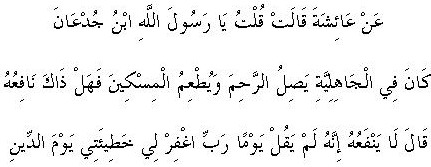 عَنْ عَائِشَةَ قَالَتْ قُلْتُ يَا رَسُولَ اللَّهِ ابْنُ جُدْعَانَ
كَانَ فِي الْجَاهِلِيَّةِ يَصِلُ الرَّحِمَ وَيُطْعِمُ الْمِسْكِينَ فَهَلْ ذَاكَ نَافِعُهُ
قَالَ لَا يَنْفَعُهُ إِنَّهُ لَمْ يَقُلْ يَوْمًا رَبِّ اغْفِرْ لِي خَطِيئَتِي يَوْمَ الدِّينِ